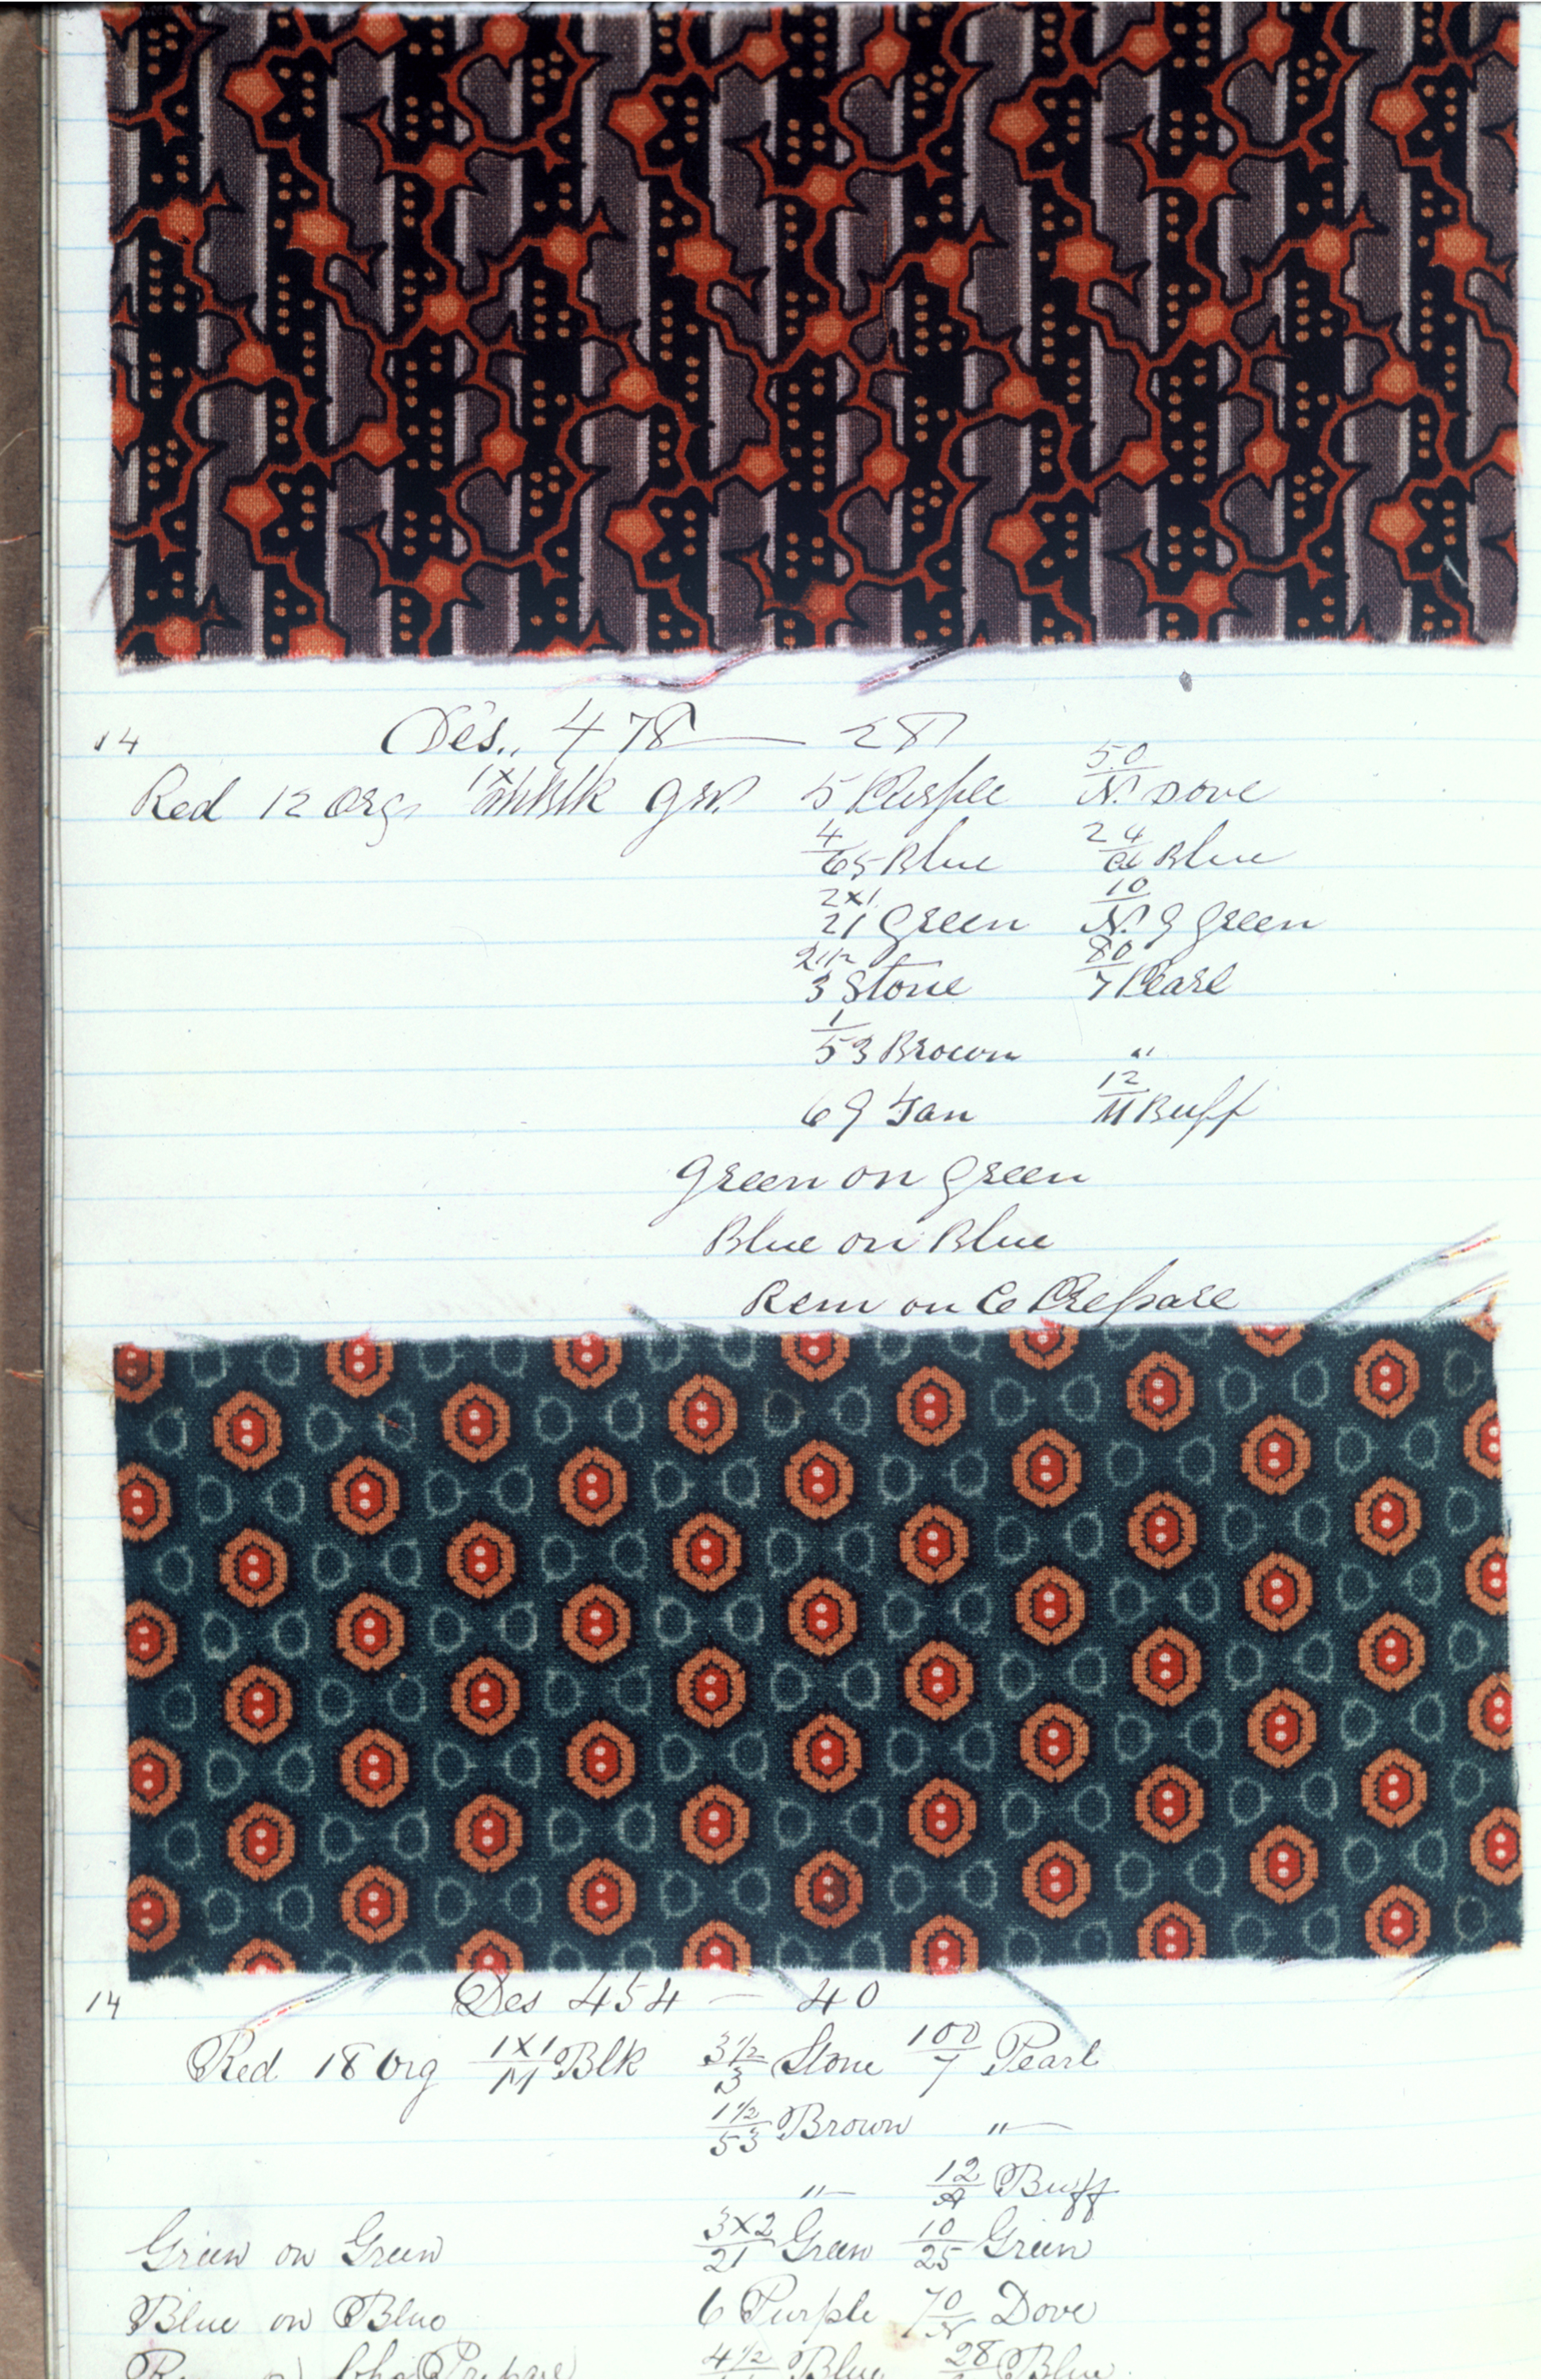 14 Des., 478 — 287
Red 12 Org, 1x Blk 5 Purple 50/N. Dove
4/65 Blue 24/ Blue
2x1/21 Green 10/N. G Green
2 1/2 3 Stone 80/7 Pearl
1/53 Brown "
6 G Tan 12/ Buff
Green on Green
Blue on Blue
Rem on C Prepare
14 Des 454 — 40
Red 18 Org 1X1/M Blk 3 1/2/3 Stone 100/7 Pearl
1 1/2/53 Brown "—
"— 12/A Buff
Green on Green 3X2/21 Green 10/25 Green
Blue on Blue 6 Purple 70/N Dove
Prepare 4 1/2 Blue 28 Blue